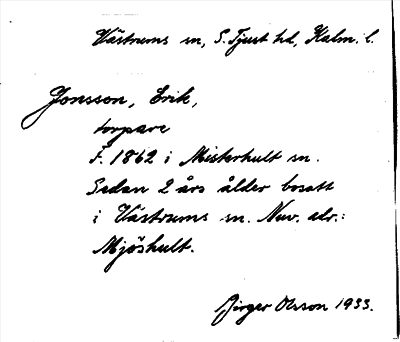 Västrums sn, S. Tjust hd, Kalm. l.
Jonsson, Erik,
torpare
F. 1862 i Misterhult sn.
Sedan 2 års ålder bosatt
i Västrums sn. Nuv. adr.:
Mjöshult.
Birger Olsson 1933.